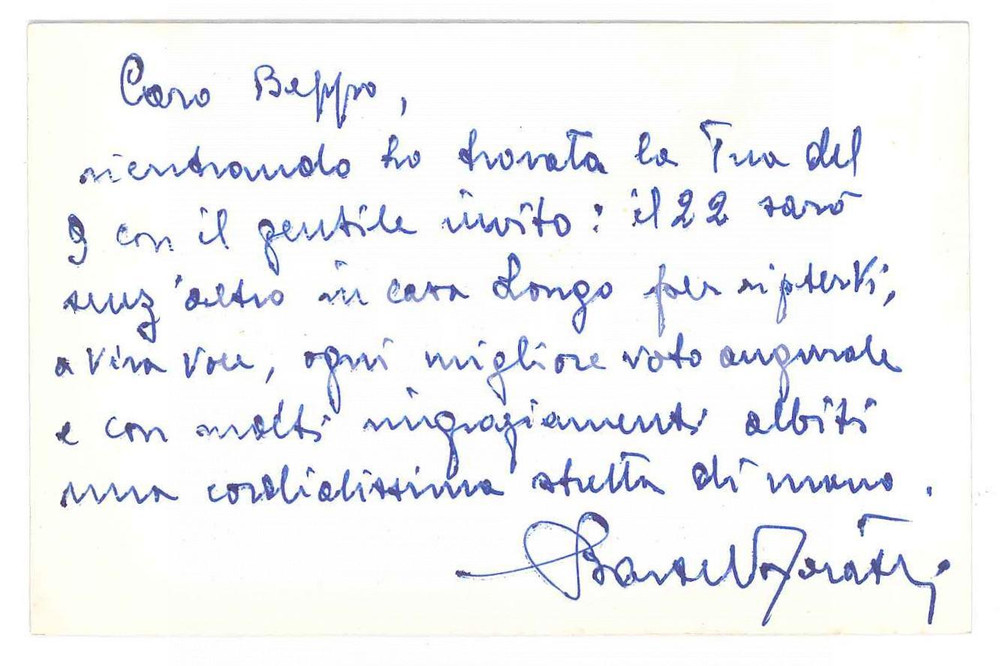 Caro Beppo,
rientrando ho trovata la Tua del
9 con il gentile invito: il 22 sarò
senz'altro in casa Longo per ripterti,
a viva voce, ogni migliore voto augurale
e con molti ringraziamenti abbiti
una cordialissima stretta di mano.